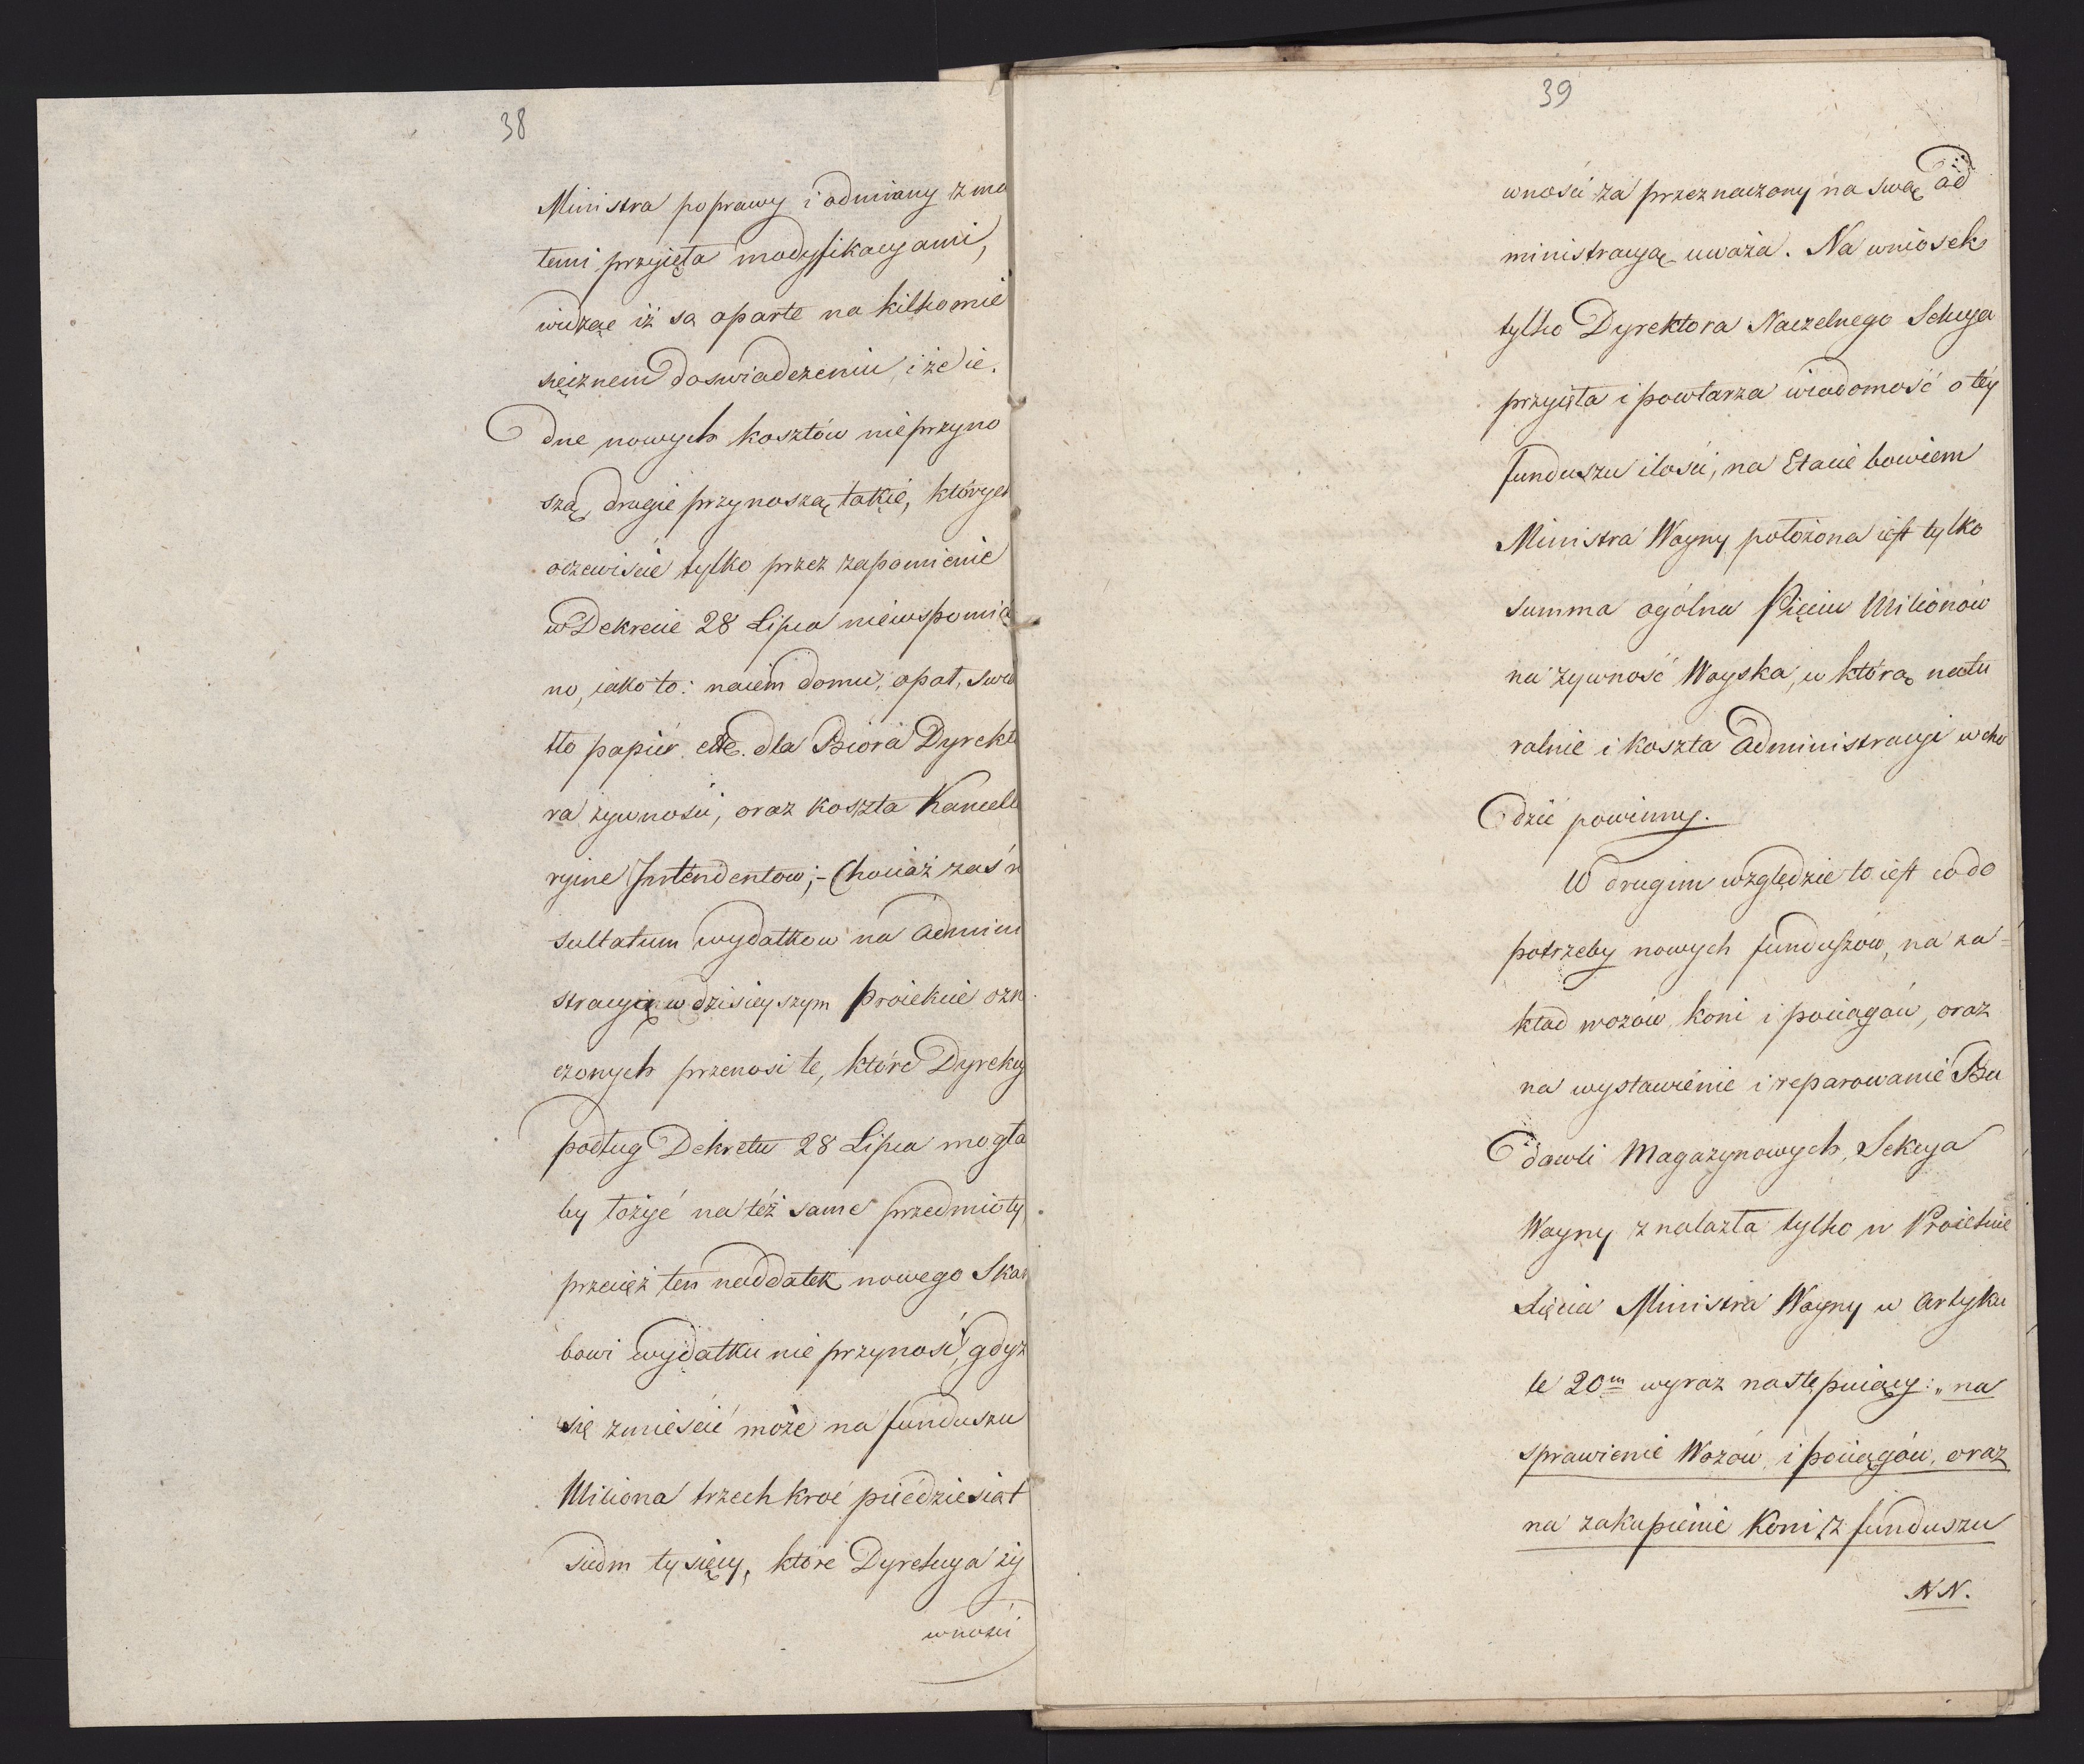 38
Ministra poprawy i odmiany z ma
temi przyięta modyfikacyami,
widząc iż są oparte na kilkomie
sięcznem doswiadczeniu, i że ie.
dne nowych kosztów nieprzyno
szą, drugie przynoszą takie, których
oczewiście tylko przez zapomienie
w Dekrecie 28 Lipca niewspomia
no, iako to: naiem domu, opał, świa
tło papiér etc. dla Biora Dyrekto
ra żywności, oraz koszta Kancella
ryine Intendentow; - Chociaż zaś r
sultatum wydatkow na admini
stracyią w dzisieyszym proiekcie ozn
czonych przenosi te, które Dyrekcy
podług Dekretu 28 Lipca mogła
by łożyć na téż same przedmioty
przecięż ten naddatek nowego Skar
bowi wydatku nie przynosi, gdyż
się zmieścić może na funduszu
Miliona trzechkroć pięćdziesiąt
siedm tysięcy, które Dyrekcya ży
wności
39
wności za przeznaczony na swą ad
ministracyą uważa. Na wniosek
tylko Dyrektora Naczelnego Sekcya
przyięta i powtarza wiadomość o téy
funduszu ilości, na Etacie bowiem
Ministra Woyny położona iest tylko
summa ogólna Pięciu Milionów
na żywność Woyska, w którą natu
ralnie i koszta administracyi wcho
dzić powinny.
W drugim względzie to iest co do
potrzeby nowych funduszów, na za=
kład wozów, koni i pociągów, oraz
na wystawienie i reparowanie Bu
dowli Magazynowych, Sekcya
Woyny znalazła tylko w Proiekcie
Xięcia Ministra Woyny w Artyku
le 20m wyraz następuiący: „na
sprawienie Wozów, i pociągów, oraz
na zakupienie Koni z funduszu
NN.